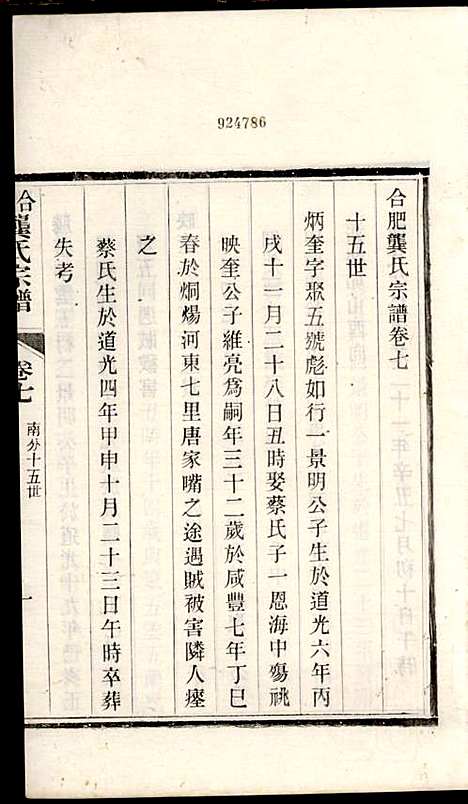 924786
合肥龔氏宗譜卷七
十五世
炳奎字聚五號彪如行一景明公子生於道光六年丙
戌十一月二十八日丑時娶蔡氏子一恩海中殤祧
映奎公子維亮為嗣年三十二歲於咸豐七年丁巳
春於烔煬河東七里唐家嘴之途遇賊被害隣人瘞
之
蔡氏生於道光四年甲申十月二十三日午時卒葬
失考
合肥龔氏宗譜
卷七
南分十五世
一